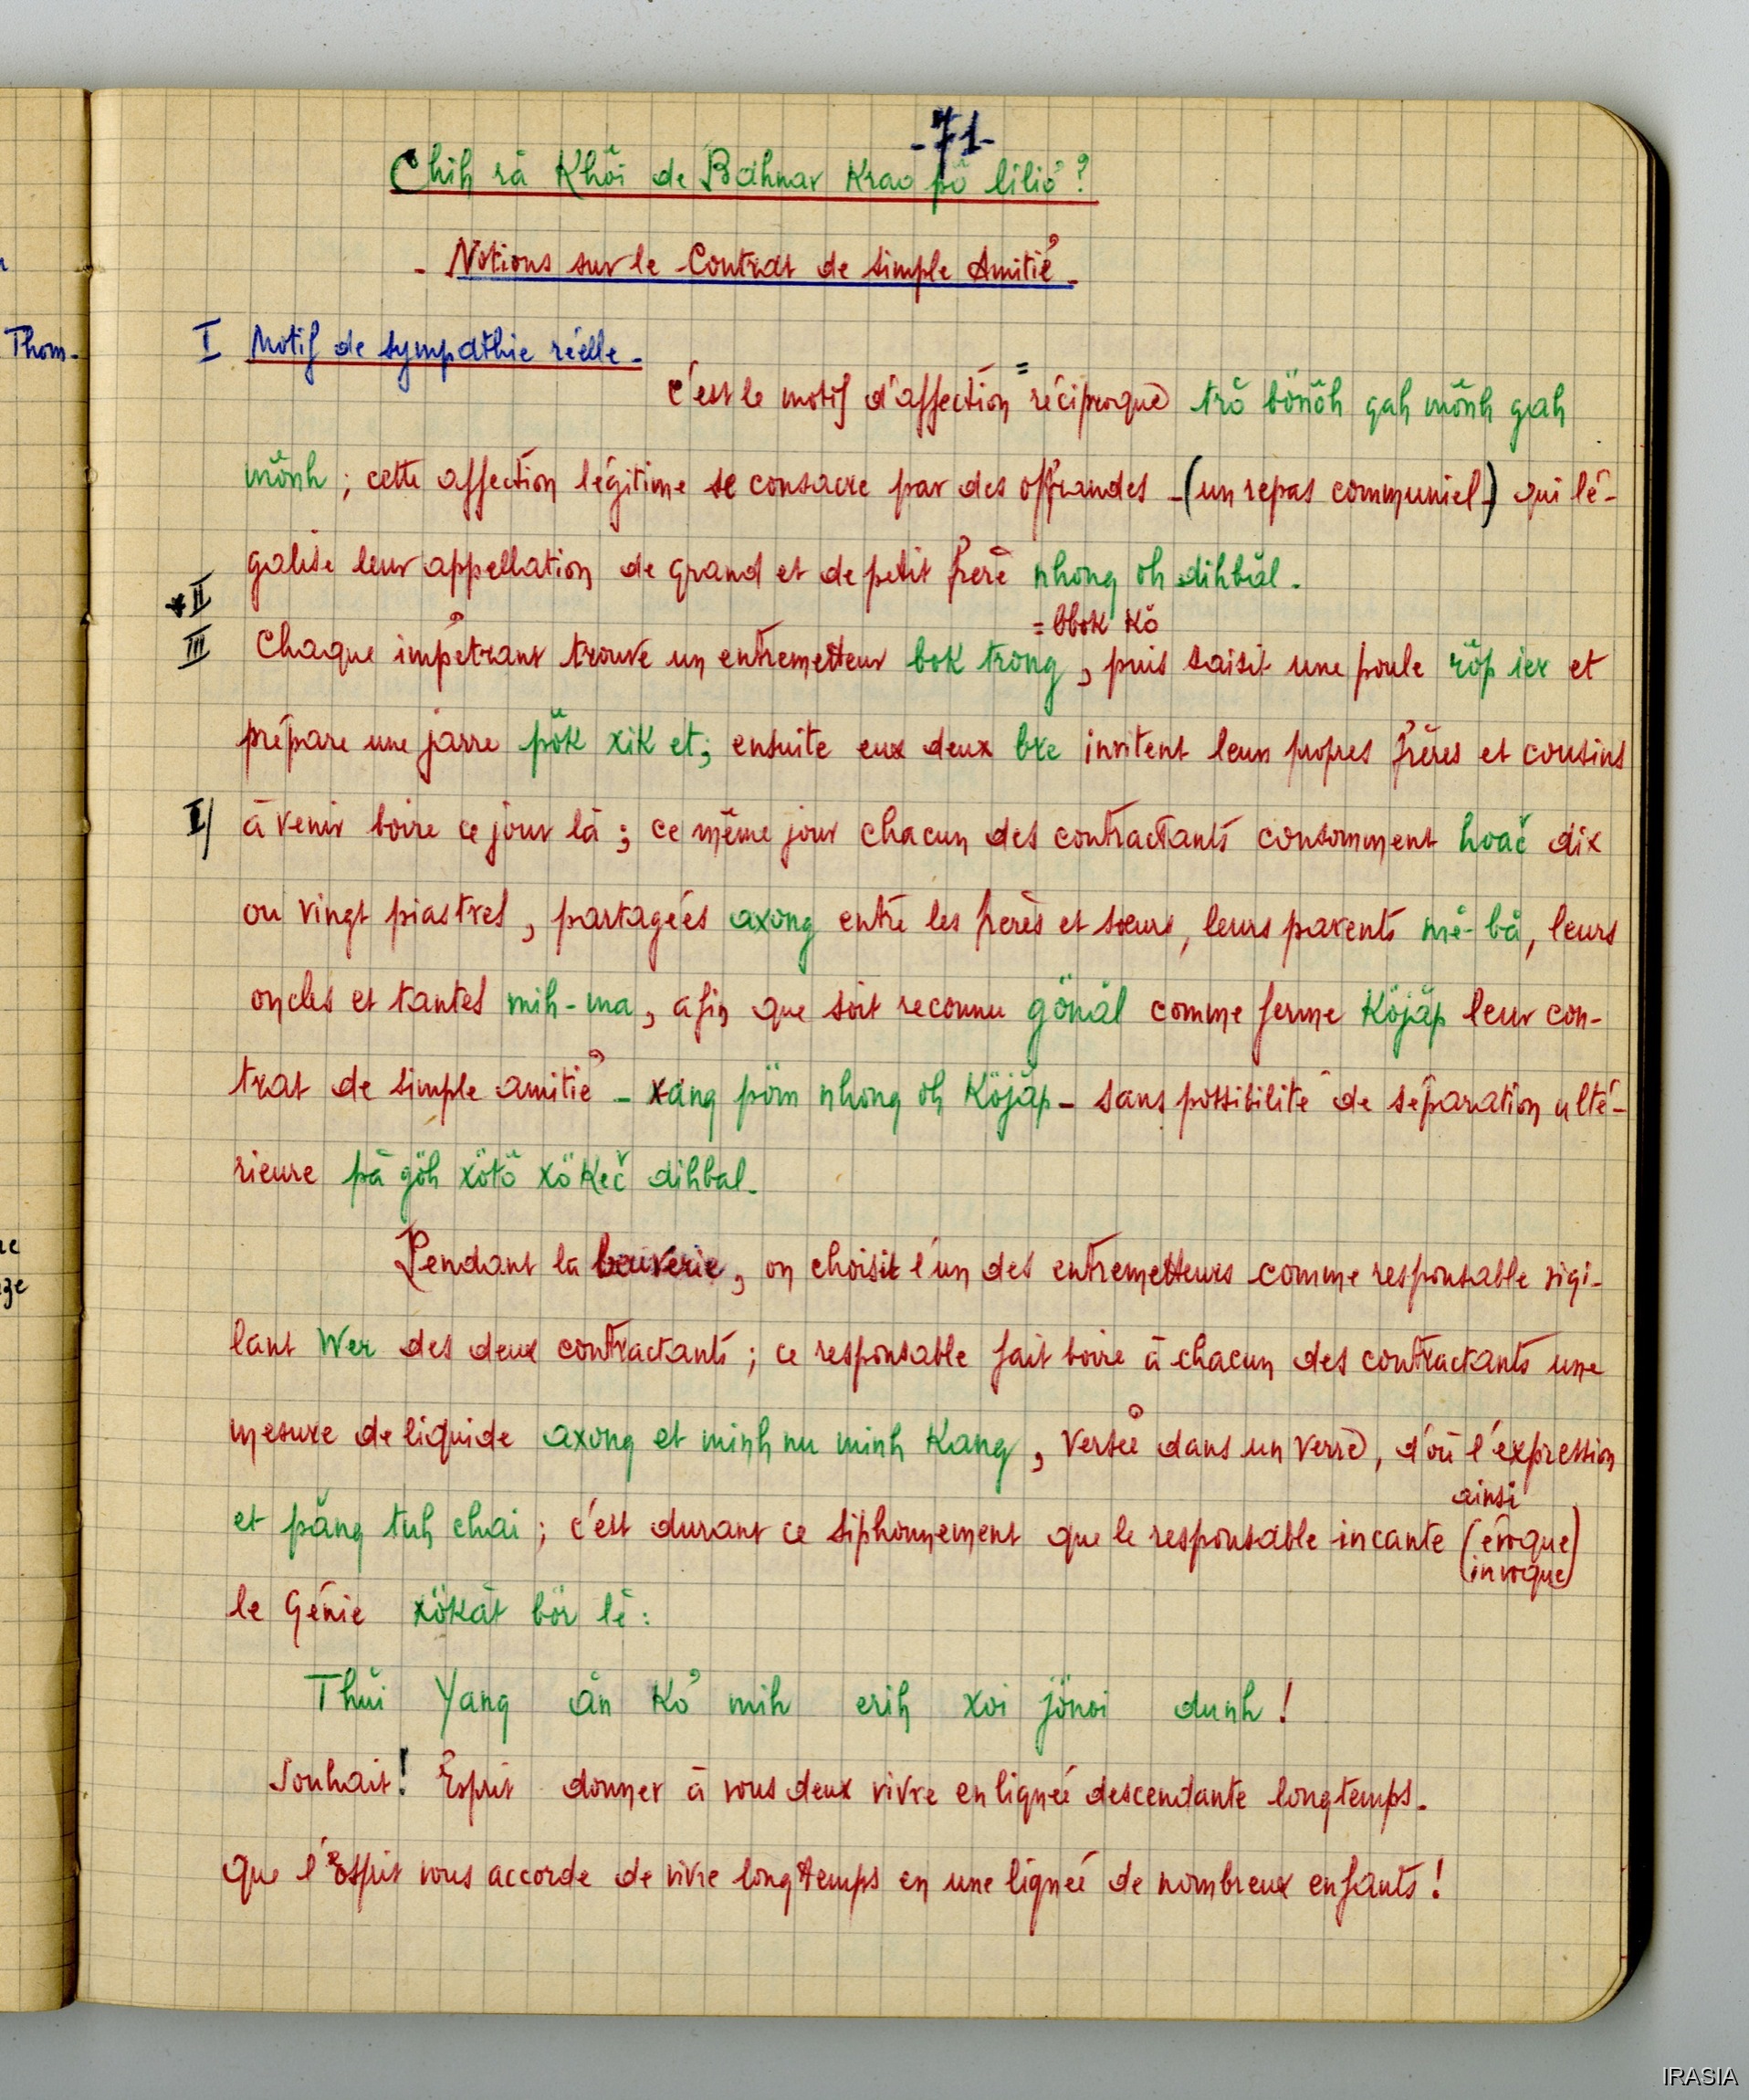 -71-
Chih rả Khõi de Bahnar Krao pŏ liliơ?
- Notions sur le Contrat de simple Amitié -
Thom-
I Motif de sympathie réelle -
c'est le motif d'affection = réciproque trŏ bönŏh gah mŏnh gah
mŏnh ; cette affection légitime se consacre par des offrandes - (un repas communiel-) qui lé-
galise leur appellation de grand et de petit frère nhong oh dihbăl.
* II
= bbok kŏ
III Chaque impétrant trouve un entremetteur bok trong, puis saisit une poule rŏp ier et
prépare une jarre pŏk xik et; ensuite eux deux bre invitent leurs propres frères et cousins
I/ à venir boire ce jour là ; ce même jour chacun des contractants consomment hoač dix
ou vingt piastres, partagées axong entre les frères et sœurs, leurs parents mê-bă, leurs
oncles et tantes mih-ma, afin que soit reconnu gönăl comme ferme Köjăp leur con-
trat de simple amitié - xang pöm nhong oh Köjăp - sans possibilité de séparation ulté-
rieure pă göh xötŏ xökeč dihbal.
Pendant la beuverie, on choisit l'un des entremetteurs comme responsable vigi-
lant Wer des deux contractants ; ce responsable fait boire à chacun des contractants une
mesure de liquide axong et minh nu minh Kang, versée dans un verre, d'où l'expression
ainsi
et păng tuh chai ; c'est durant ce siphonnement que le responsable incante (évoque)
(invoque)
le Génie xökăt bör lĕ :
Thŭi Yang ăn Kơ mih erih xoi jönoi dunh !
Souhait ! Esprit donner à vous deux vivre en lignée descendante longtemps.
Que l'Esprit vous accorde de vivre longtemps en une lignée de nombreux enfants !
IRASIA